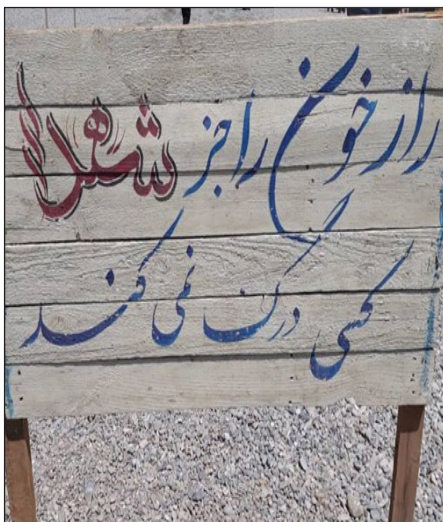 راز خون را جز شهدا
کسی درک نمی کند